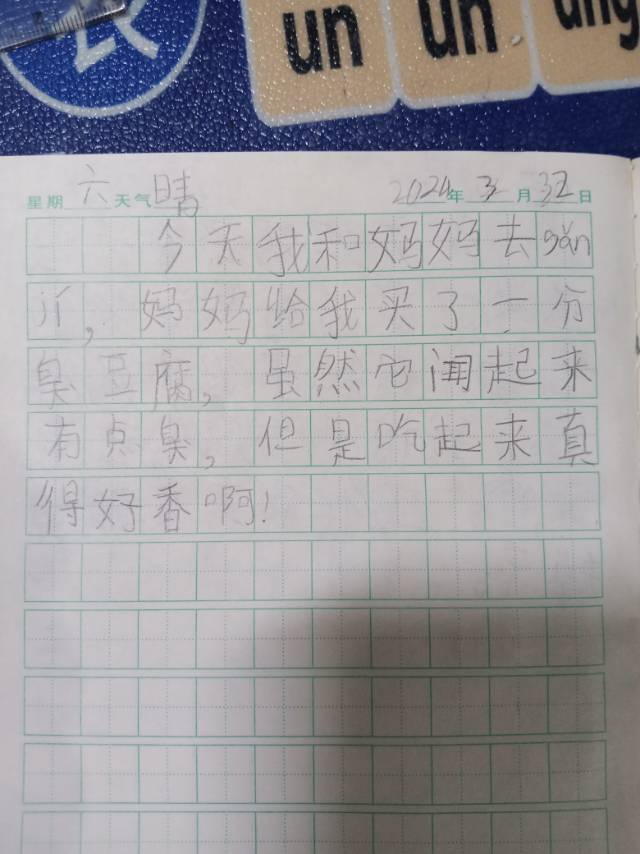 un un ung
星期 六 天气 晴 2024年 3月 日
今天我和妈妈去gǎn
,妈妈给我买了一分
臭豆腐,虽然它闻起来
有点臭,但是吃起来真
得好香啊!